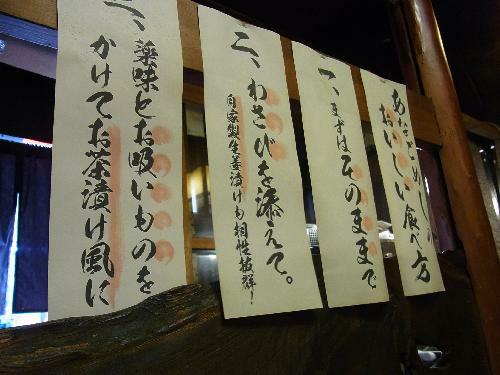 あなごめしの
おいしい食べ方
一、まずはそのままで
二、わさびを添えて。
自家製生姜漬けも相性抜群！
三、薬味とお吸いものを
かけてお茶漬け風に